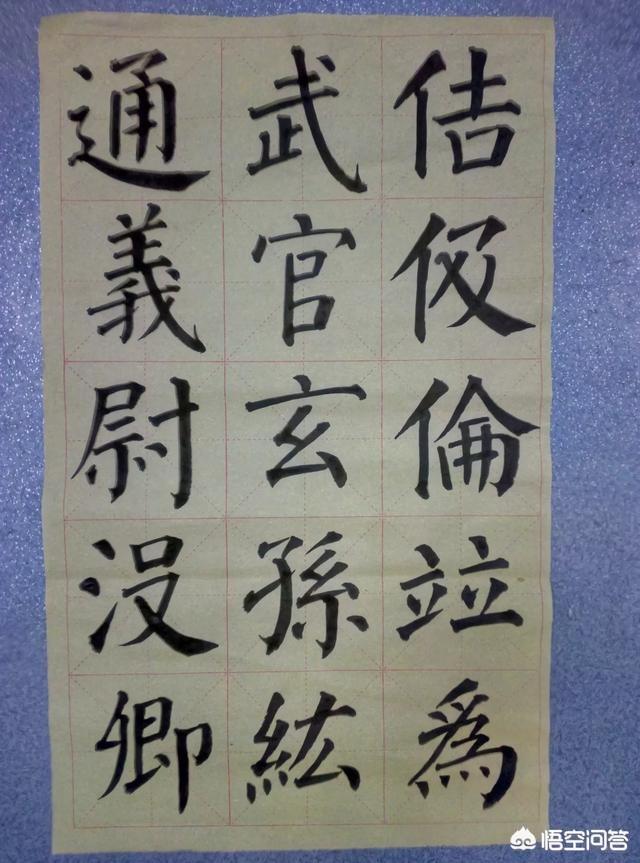 佶伋倫竝爲
武官玄孫紘
通義尉没卿
悟空问答